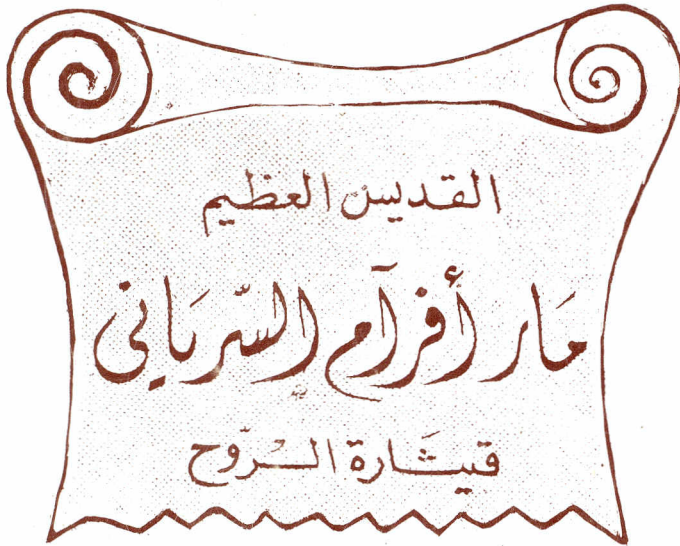 القديس العظيم
مَار أفرآم السّريَاني
قيثَارة الرّوح